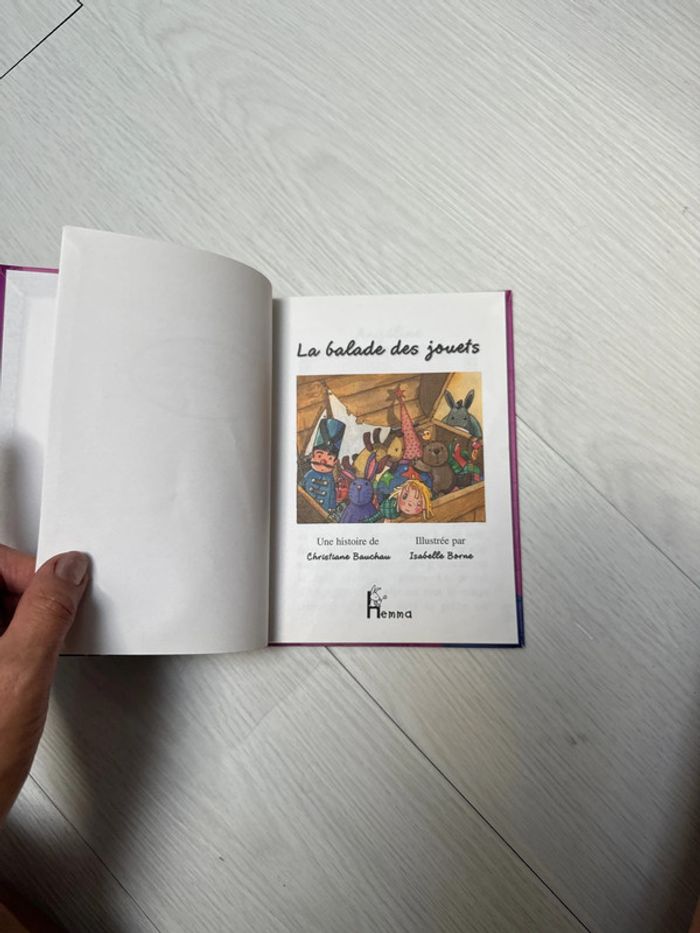 La balade des jouets
Une histoire de
Christiane Bauchau
Illustrée par
Isabelle Borne
Hemma